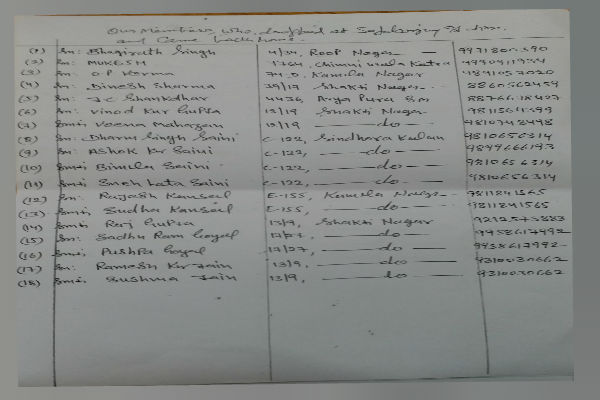 Our Members who
and Came back home.
(1) Sri: Bhagirath Singh 4/24, Roop Nagar — 9971800590
(2) Sri: MUKESH 1764, Chimni wala Katra
(3) Sri: O P Verma 74-D, Kamla Nagar
(4) Sri: Dinesh Sharma 39/17 Shakti Nagar 8860562459
(5) Sri: J C Shankdhar 4436, Arya Pura
(6) Sri: Vinod Kur Gupta 13/19 Shakti Nagar
(7) Smti: Veena Mahajan 13/19 — do — 9810748498
(8) Sri: Dharm Singh Saini C-122, Sindhora Kalan 9810656314
(9) Sri: ASHOK Kr Saini C-122, — do — 9899666193
(10) Smti: Bimla Saini C-122, — do — 9810656314
(11) Smti: Sneh Lata Saini C-122, — do — 9810656314
(12) Sri: Rajesh Kansail E-155, Kamla Nagar 9811841565
(13) Smti: Sudha Kansail E-155, — do — 9811841565
(14) Smti: Raj Gupta 13/9, Shakti Nagar
(15) Sri: Sadhu Ram Goyal 17/27, — do — 9958617992
(16) Smti: Pushpa Goyal 17/27, — do — 9958617992
(17) Sri: Ramesh Kr Jain 13/9, — do — 9310030662
(18) Smti: Sushma Jain 13/9, — do — 9310030662